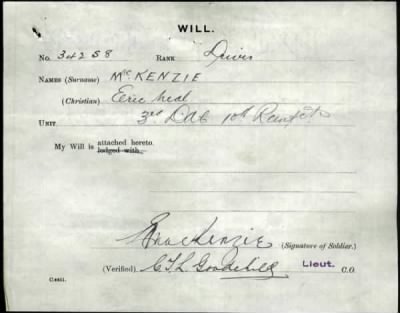 WILL.
No. 34258 RANK Driver
NAMES (Surname) McKENZIE
(Christian) Eric Neal
UNIT 3rd DAC 10th Reinfts
My Will is attached hereto.
lodged with
E MacKenzie (Signature of Soldier.)
(Verified) Lieut. C.O.
C.4411.